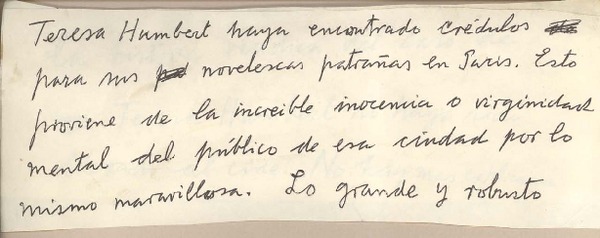 Teresa Humbert haya encontrado crédulos
para sus novelescas patrañas en Paris. Esto
proviene de la increible inocencia o virginidad
mental del público de esa ciudad por lo
mismo maravillosa. Lo grande y robusto